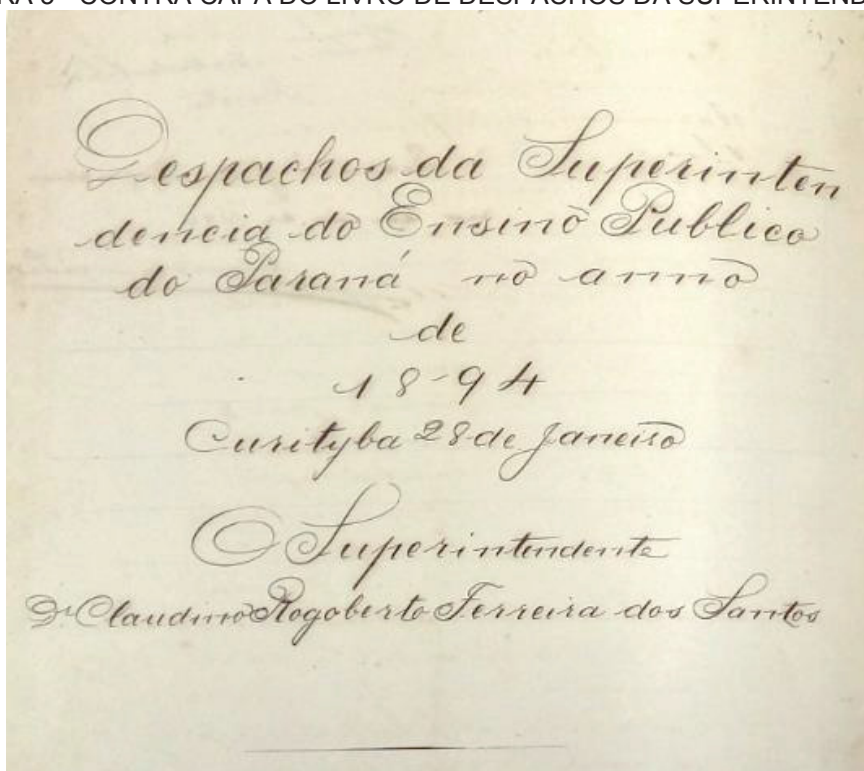 RA 6 - CONTRA CAPA DO LIVRO DE DESPACHOS DA SUPERINTEND
Despachos da Superinten
dencia do Ensino Publico
do Paraná no anno
de
1894
Curityba 28 de Janeiro
O Superintendente
Dr Claudino Rogoberto Ferreira dos Santos